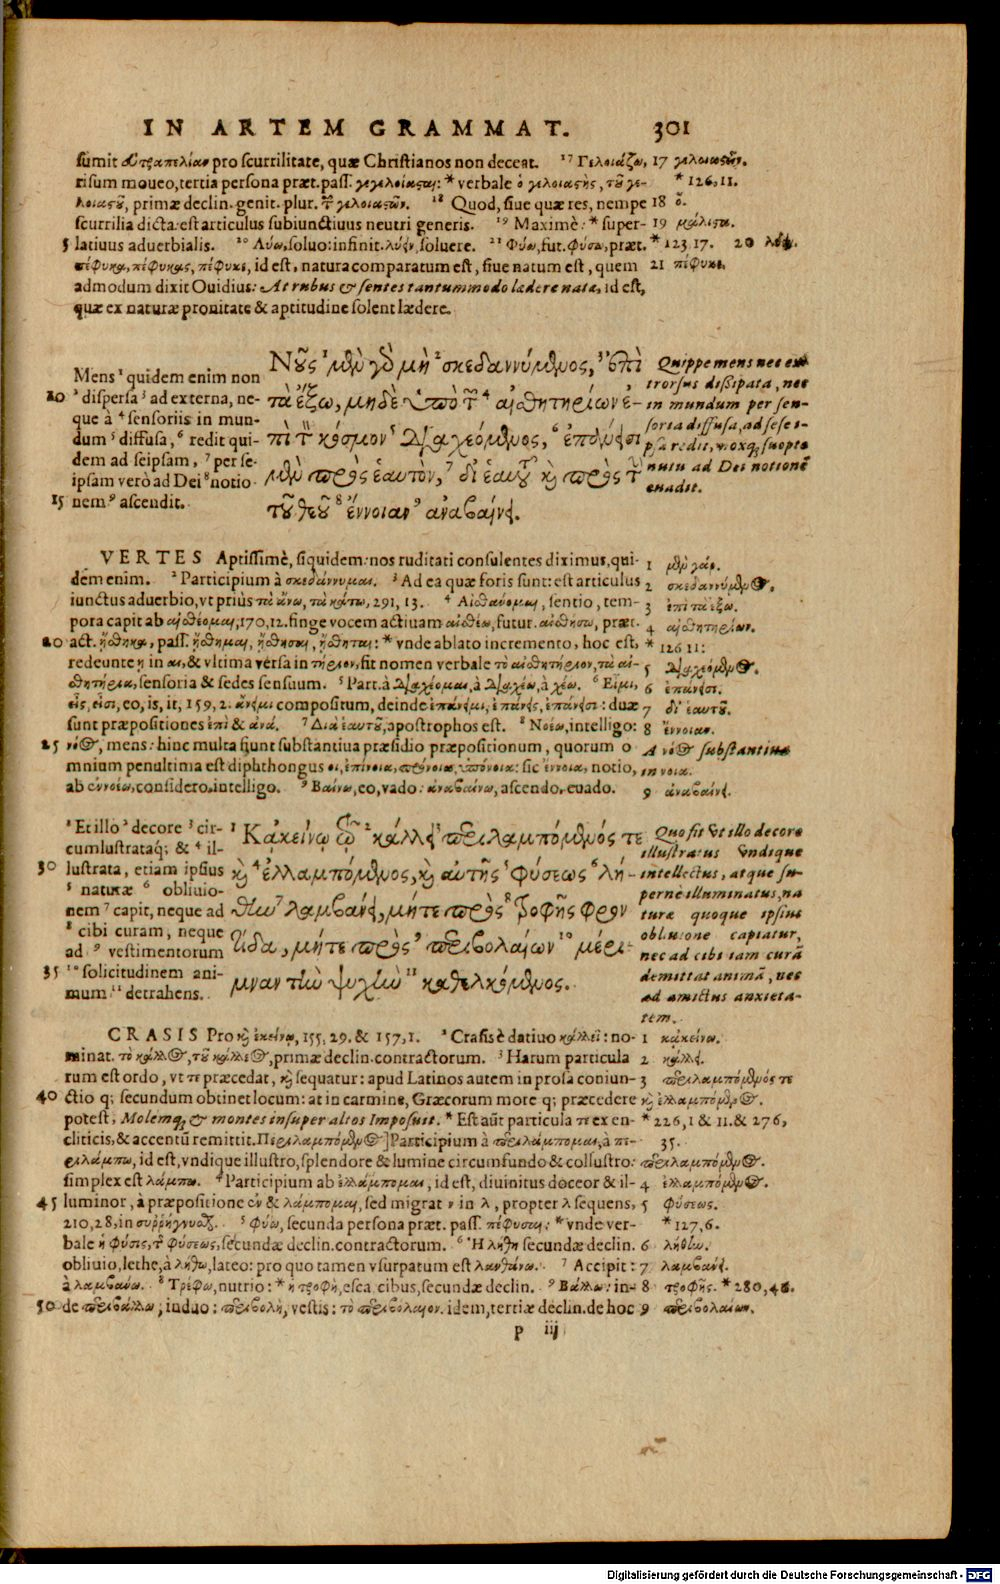 IN ARTEM GRAMMAT. 301
sumit εὐτραπελίαν pro scurrilitate, quæ Christianos non deceat. 17 Γελοιάζω, 17 γελοιαστῶν.
risum moueo, tertia persona præt. pass. γεγελοίασται: * verbale ὁ γελοιαστὴς, τοῦ γε- * 126, 11.
λοιαστοῦ, primæ declin. genit. plur. τῶν γελοιαστῶν. 18 Quod, siue quæ res, nempe 18 ὅ.
scurrilia dicta: est articulus subiunctiuus neutri generis. 19 Maximè: * super- 19 μάλιστα.
5 latiuus aduerbialis. 20 Λύω, soluo: infinit. λύειν, soluere. 21 Φύω, fut. φύσω, præt. * 123, 17. 20 λύειν.
πέφυκα, πέφυκας, πέφυκε, id est, natura comparatum est, siue natum est, quem 21 πέφυκε,
admodum dixit Ouidius: At rubus & sentes tantummodo lædere nata, id est,
quæ ex naturæ pronitate & aptitudine solent lædere.
Mens 1 quidem enim non
10 2 dispersa 3 ad externa, ne-
que à 4 sensoriis in mun-
dum 5 diffusa, 6 redit qui-
dem ad seipsam, 7 per se-
ipsam verò ad Dei 8 notio-
15 nem 9 ascendit.
Νοῦς 1 μὲν γὰρ μὴ 2 σκεδαννύμενος, 3 ἐπὶ
τὰ ἔξω, μηδὲ ὑπὸ τῶν 4 αἰσθητηρίων ἐ-
πὶ τὸν κόσμον 5 διαχεόμενος, 6 ἐπάνεισι
μὲν πρὸς ἑαυτὸν, 7 δι' ἑαυτοῦ δὲ πρὸς τὴν
τοῦ θεοῦ 8 ἔννοιαν 9 ἀναβαίνει.
Quippe mens nec ex
trorsus dissipata, nec
in mundum per sen-
soria diffusa, ad sese i-
psa redit, moxq; suopte
nutu ad Dei notionē
euadit.
VERTES Aptissimè, siquidem: nos ruditati consulentes diximus, qui- 1 μὲν γάρ.
dem enim. 2 Participium à σκεδάννυμαι. 3 Ad ea quæ foris sunt: est articulus 2 σκεδαννύμενος.
iunctus aduerbio, vt priùs τὰ ἄνω, τὰ κάτω, 291, 13. 4 Αἰσθάνομαι, sentio, tem- 3 ἐπὶ τὰ ἔξω.
pora capit ab αἰσθέομαι, 170, 12. finge vocem actiuam αἰσθέω, futur. αἰσθήσω, præt. 4 αἰσθητηρίων.
20 act. ᾔσθηκα, pass. ᾔσθημαι, ᾔσθησαι, ᾔσθηται: * vnde ablato incremento, hoc est, * 126 11:
redeunte ῃ in αι, & vltima versa in τήριον, fit nomen verbale τὸ αἰσθητήριον, τὰ αἰ- 5 διαχεόμενος.
σθητήρια, sensoria & sedes sensuum. 5 Part. à διαχέομαι, à διαχέω, à χέω. 6 Εἶμι, 6 ἐπάνεισι.
εἶς, εἶσι, eo, is, it, 159, 2. ἄνειμι compositum, deinde ἐπάνειμι, ἐπάνεις, ἐπάνεισι: duæ 7 δι' ἑαυτοῦ.
sunt præpositiones ἐπὶ & ἀνά. 7 Διὰ ἑαυτοῦ, apostrophos est. 8 Νοέω, intelligo: 8 ἔννοιαν.
25 νόος, mens: hinc multa fiunt substantiua præsidio præpositionum, quorum o A νόος substantiua
mnium penultima est diphthongus οι, ἐπίνοια, πρόνοια, ὑπόνοια: sic ἔννοια, notio, in νοια.
ab ἐννοέω, considero, intelligo. 9 Βαίνω, eo, vado: ἀναβαίνω, ascendo, euado. 9 ἀναβαίνει.
1 Et illo 2 decore 3 cir-
cumlustrataq; & 4 il-
30 lustrata, etiam ipsius
5 naturæ 6 obliuio-
nem 7 capit, neque ad
8 cibi curam, neque
ad 9 vestimentorum
35 10 solicitudinem ani-
mum 11 detrahens.
1 Κἀκείνῳ τῷ 2 κάλλει 3 περιλαμπόμενός τε
καὶ 4 ἐλλαμπόμενος, καὶ αὐτῆς 5 φύσεως 6 λή-
θην 7 λαμβάνει, μήτε πρὸς 8 τροφῆς φρον
τίδα, μήτε πρὸς 9 περιβολαίων 10 μέρι-
μναν τὴν ψυχὴν 11 καθελκόμενος.
Quo fit vt illo decore
illustratus vndique
intellectus, atque su-
pernè illuminatus, na
turæ quoque ipsius
obliuione capiatur,
nec ad cibi iam curā
demittat animā, nec
ad amictus anxieta-
tem.
CRASIS Pro καὶ ἐκείνῳ, 155, 29. & 157, 1. 2 Crasis è datiuo κάλλεϊ: no- 1 κἀκείνῳ.
minat. τὸ κάλλος, τοῦ κάλλεος, primæ declin. contractorum. 3 Harum particula 2 κάλλει.
rum est ordo, vt τε præcedat, καὶ sequatur: apud Latinos autem in prosa coniun- 3 περιλαμπόμενός τε
40 ctio q; secundum obtinet locum: at in carmine, Græcorum more q; præcedere καὶ ἐλλαμπόμενος.
potest, Molemq; & montes insuper altos Imposuit. * Est aūt particula τε ex en- * 226, 1 & 11. & 276,
cliticis, & accentū remittit. Περιλαμπόμενος] Participium à περιλάμπομαι, à πε- 35.
ριλάμπω, id est, vndique illustro, splendore & lumine circumfundo & collustro: περιλαμπόμενος.
simplex est λάμπω. 4 Participium ab ἐλλάμπομαι, id est, diuinitus doceor & il- 4 ἐλλαμπόμενος.
45 luminor, à præpositione ἐν & λάμπομαι, sed migrat ν in λ, propter λ sequens, 5 φύσεως.
210, 28, in συῤῥήγνυσθαι. 5 Φύω, secunda persona præt. pass. πέφυσαι: * vnde ver- * 127, 6.
bale ἡ φύσις, τῆς φύσεως, secundæ declin. contractorum. 6 Ἡ λήθη secundæ declin. 6 λήθην.
obliuio, lethe, à λήθω, lateo: pro quo tamen vsurpatum est λανθάνω. 7 Accipit: 7 λαμβάνει.
à λαμβάνω. 8 Τρέφω, nutrio: * ἡ τροφὴ, esca, cibus, secundæ declin. 9 Βάλλω: in- 8 τροφῆς. * 280, 46.
50 de περιβάλλω, induo: περιβολὴ, vestis: τὸ περιβόλαιον, idem, tertiæ declin. de hoc 9 περιβολαίων.
p iij
Digitalisierung gefördert durch die Deutsche Forschungsgemeinschaft - DFG